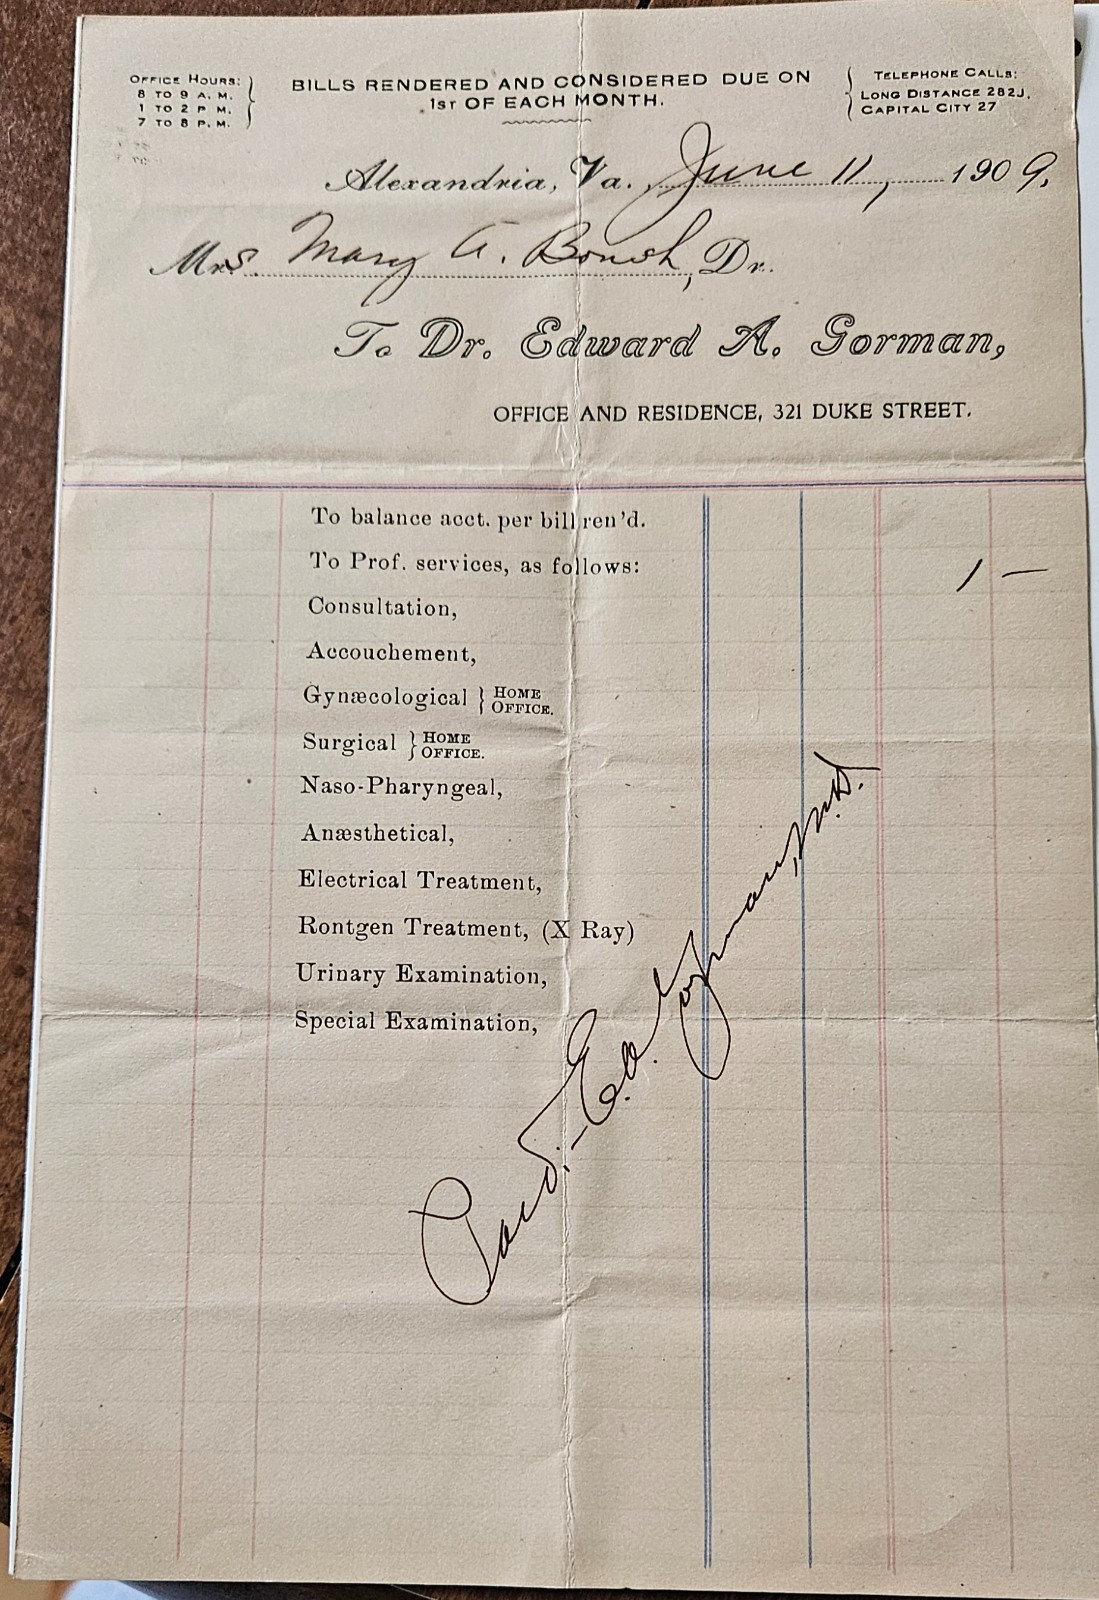 OFFICE HOURS:
8 TO 9 A. M.
1 TO 2 P. M.
7 TO 8 P. M.
BILLS RENDERED AND CONSIDERED DUE ON
1ST OF EACH MONTH.
TELEPHONE CALLS:
LONG DISTANCE 282J.
CAPITAL CITY 27
Alexandria, Va., June 11, 1909.
Mrs. Mary A. , Dr.
To Dr. Edward A. Gorman,
OFFICE AND RESIDENCE, 321 DUKE STREET.
To balance acct. per bill ren'd.
To Prof. services, as follows: 1 —
Consultation,
Accouchement,
Gynæcological } HOME
OFFICE.
Surgical } HOME
OFFICE.
Naso-Pharyngeal,
Anæsthetical,
Electrical Treatment,
Rontgen Treatment, (X Ray)
Urinary Examination,
Special Examination,
Paid.- E.A. Gorman, M.D.